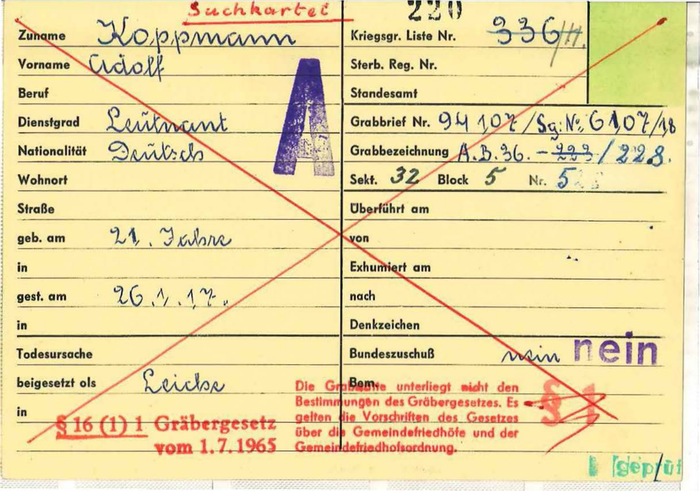 Suchkartei
220
Zuname Koppmann
Kriegsgr. Liste Nr. 336/II.
Vorname Adolf
Sterb. Reg. Nr.
Beruf
Standesamt
A
Dienstgrad Leutnant
Grabbrief Nr. 94107/Sg: Nr. 6107/18
Nationalität Deutsch
Grabbezeichnung A.B.36. - 223 / 228.
Wohnort
Sekt. 32 Block 5 Nr. 5
Straße
Überführt am
geb. am 21. Jahre
von
in
Exhumiert am
gest. am 26.1.17.
nach
in
Denkzeichen
Todesursache
Bundeszuschuß nein nein
beigesetzt als Leiche
Bem.
in
§ 16 (1) 1 Gräbergesetz
vom 1.7.1965
Die Grabstätte unterliegt nicht den
Bestimmungen des Gräbergesetzes. Es
gelten die Vorschriften des Gesetzes
über die Gemeindefriedhöfe und der
Gemeindefriedhofsordnung.
§ 1
geprüft